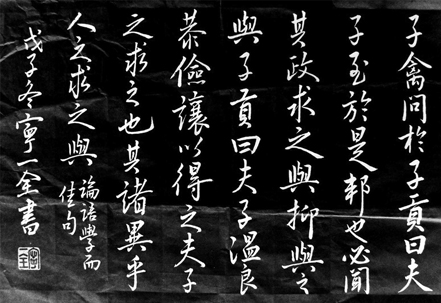 子禽問於子貢曰夫
子至於是邦也必聞
其政求之與抑與之
與子貢曰夫子溫良
恭儉讓以得之夫子
之求之也其諸異乎
人之求之與
論語學而
佳句
戊子冬寧一全書